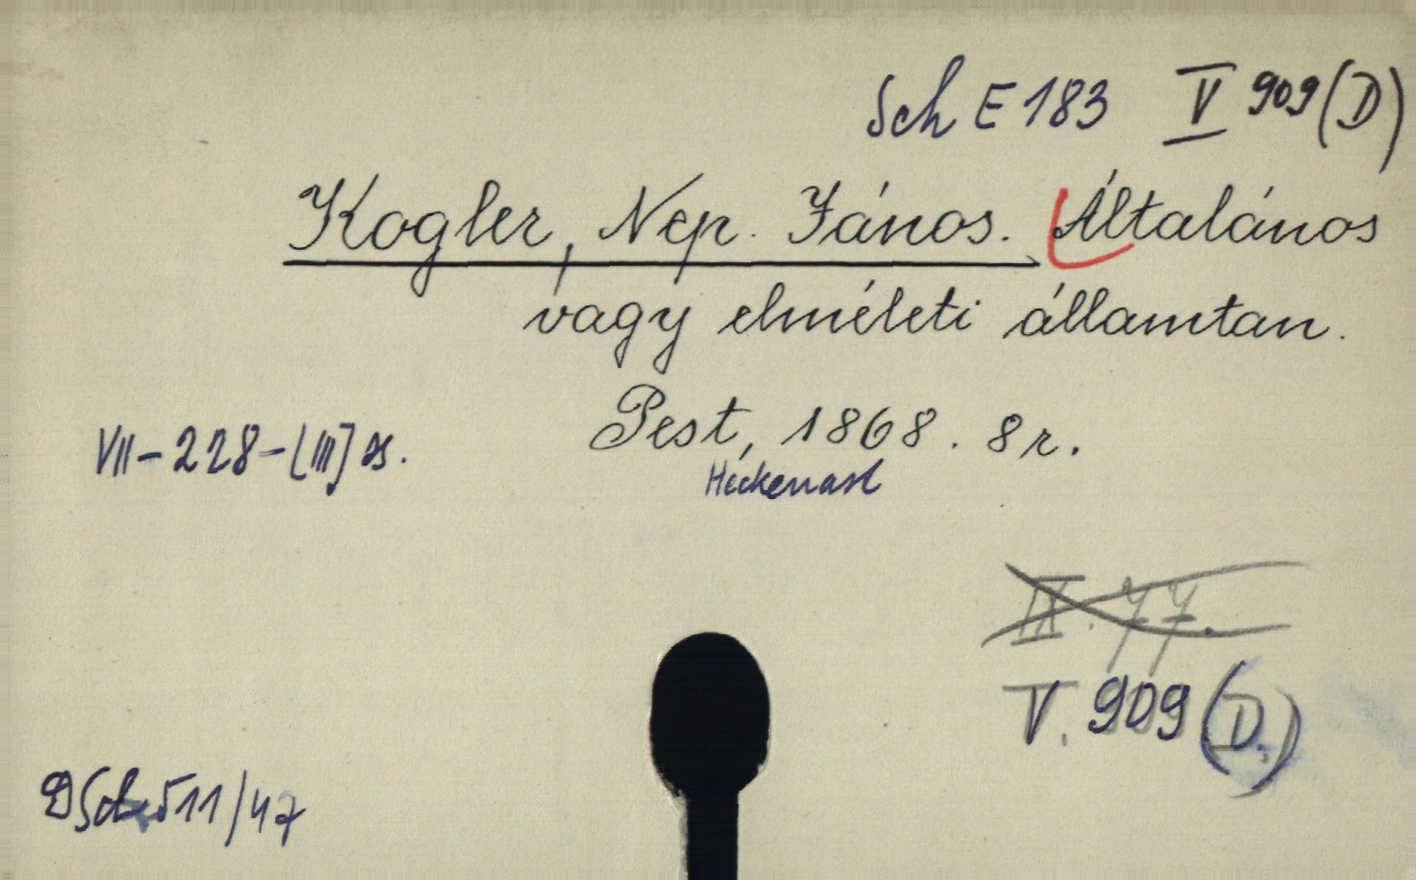 Sch E 183 V 909 (D)
Kogler, Nep. János. Általános
vagy elméleti államtan.
Pest, 1868. 8r.
Heckenast
VII-228-[III] os.
IX. 77.
V. 909 (D.)
DSch 511/47